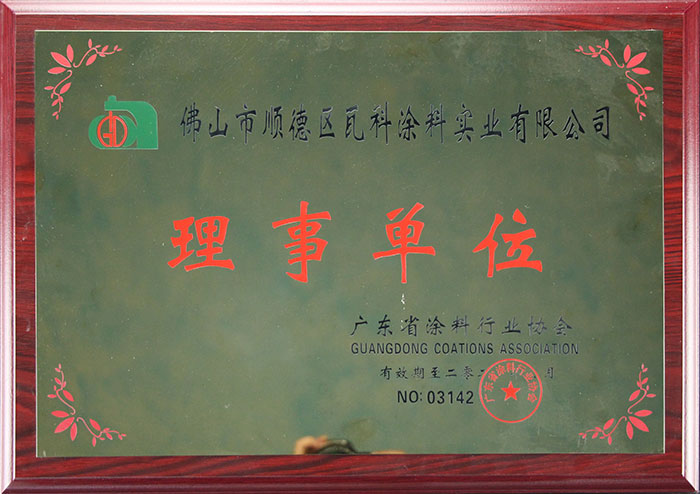 佛山市顺德区瓦科涂料实业有限公司
理事单位
广东省涂料行业协会
GUANGDONG COATIONS ASSOCIATION
有效期至二零二 月
NO: 03142
广东省涂料行业协会